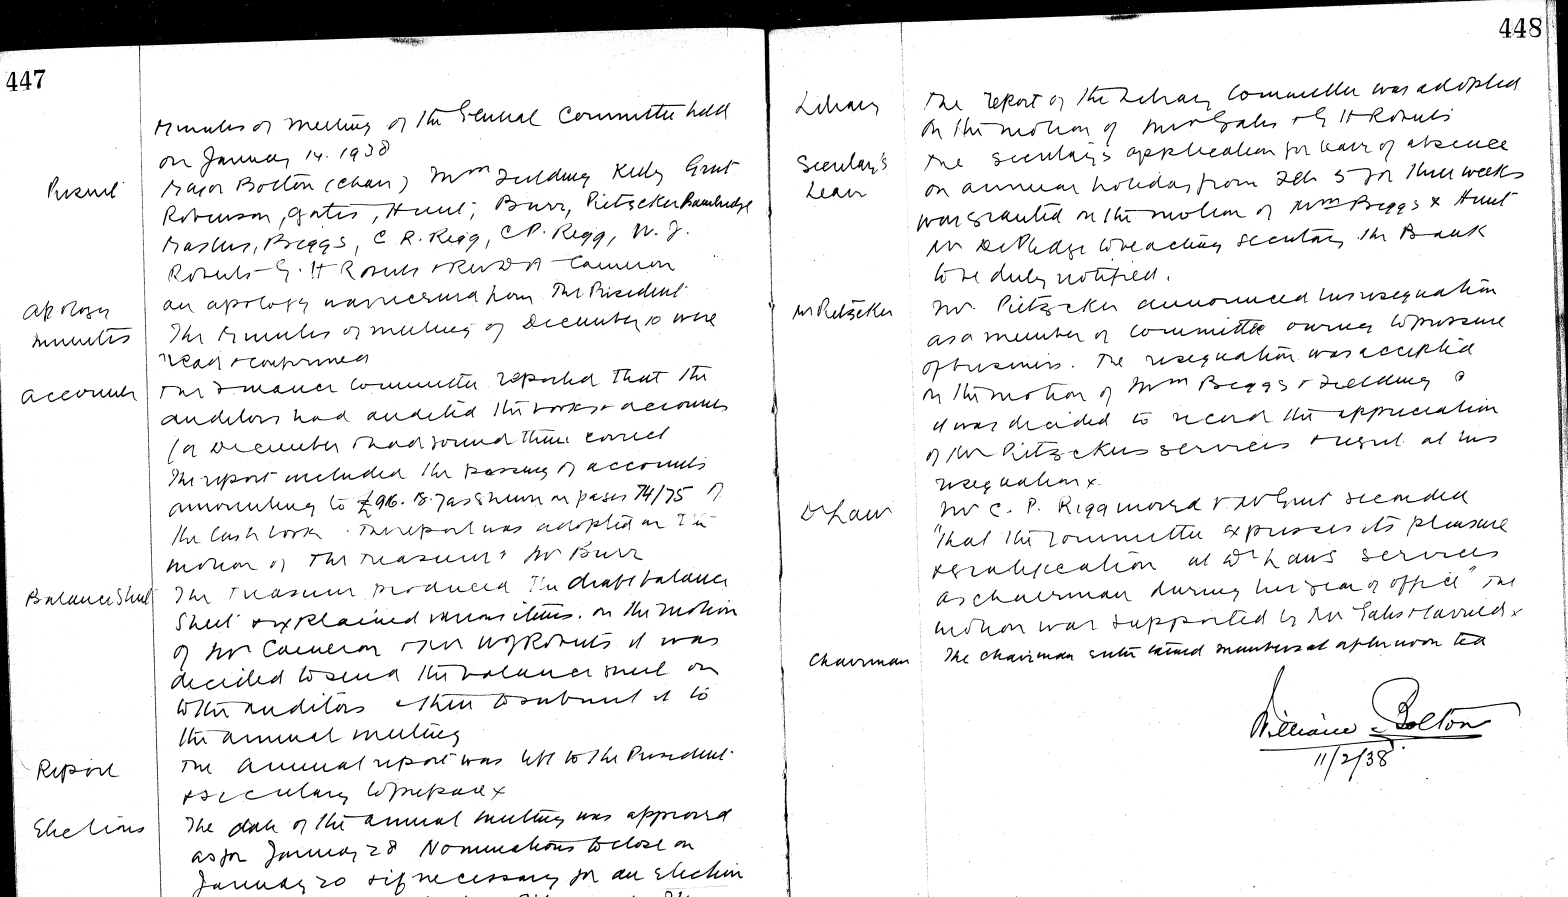 447
Minutes of meeting of the General Committee held
on January 14. 1938
Present
Major Bolton (chair) Messrs Fielding Kelly Grut
Robinson, Gates, Hunt, Burr, Pietzcker Bainbridge
Masters, Briggs, C R. Rigg, C P. Rigg, W. J.
Roberts G. H Roberts & Rev D A Cameron
Apology
an apology was received from The President
Minutes
The Minutes of meeting of December 10 were
read & confirmed
Accounts
The Finance Committee reported that the
auditors had audited the books & accounts
for December & had found them correct
The report included the passing of accounts
amounting to as shown on pages 74/75 of
the Cash book. The report was adopted on the
motion of The Treasurer & Mr Burr
Balance Sheet
The Treasurer produced The draft balance
Sheet & explained various items. on the motion
of Mr Cameron & Mr W J Roberts it was
decided to send the balance sheet on
to the auditors & then to submit it to
the annual meeting
Report
The annual report was left to the President
& secretary to prepare x
Elections
The date of the annual meeting was approved
as for January 28 Nominations to close on
January 20 & if necessary for an Election
448
Library
The report of the Library Committee was adopted
on the motion of Messrs Gates & G H Roberts
Secretary's
Leave
The Secretary's application for leave of absence
on annual holidays from Feb 5 for three weeks
was granted on the motion of Messrs Briggs & Hunt
Mr De Pledge to be acting Secretary the Bank
to be duly notified.
Mr Pietzcker
Mr. Pietzcker announced his resignation
as a member of Committee owing to pressure
of business. The resignation was accepted
on the motion of Messrs Briggs & Fielding &
it was decided to record the appreciation
of Mr Pietzckers services & regret at his
resignation x
Dr Law
Mr C. P. Rigg moved & Mr Grut seconded
"that the Committee expresses its pleasure
& gratification at Dr Laws services
as chairman during her year of office" The
motion was supported by Mr Gates & carried x
Chairman
The chairman entertained members at afternoon tea
William Bolton
11/2/38